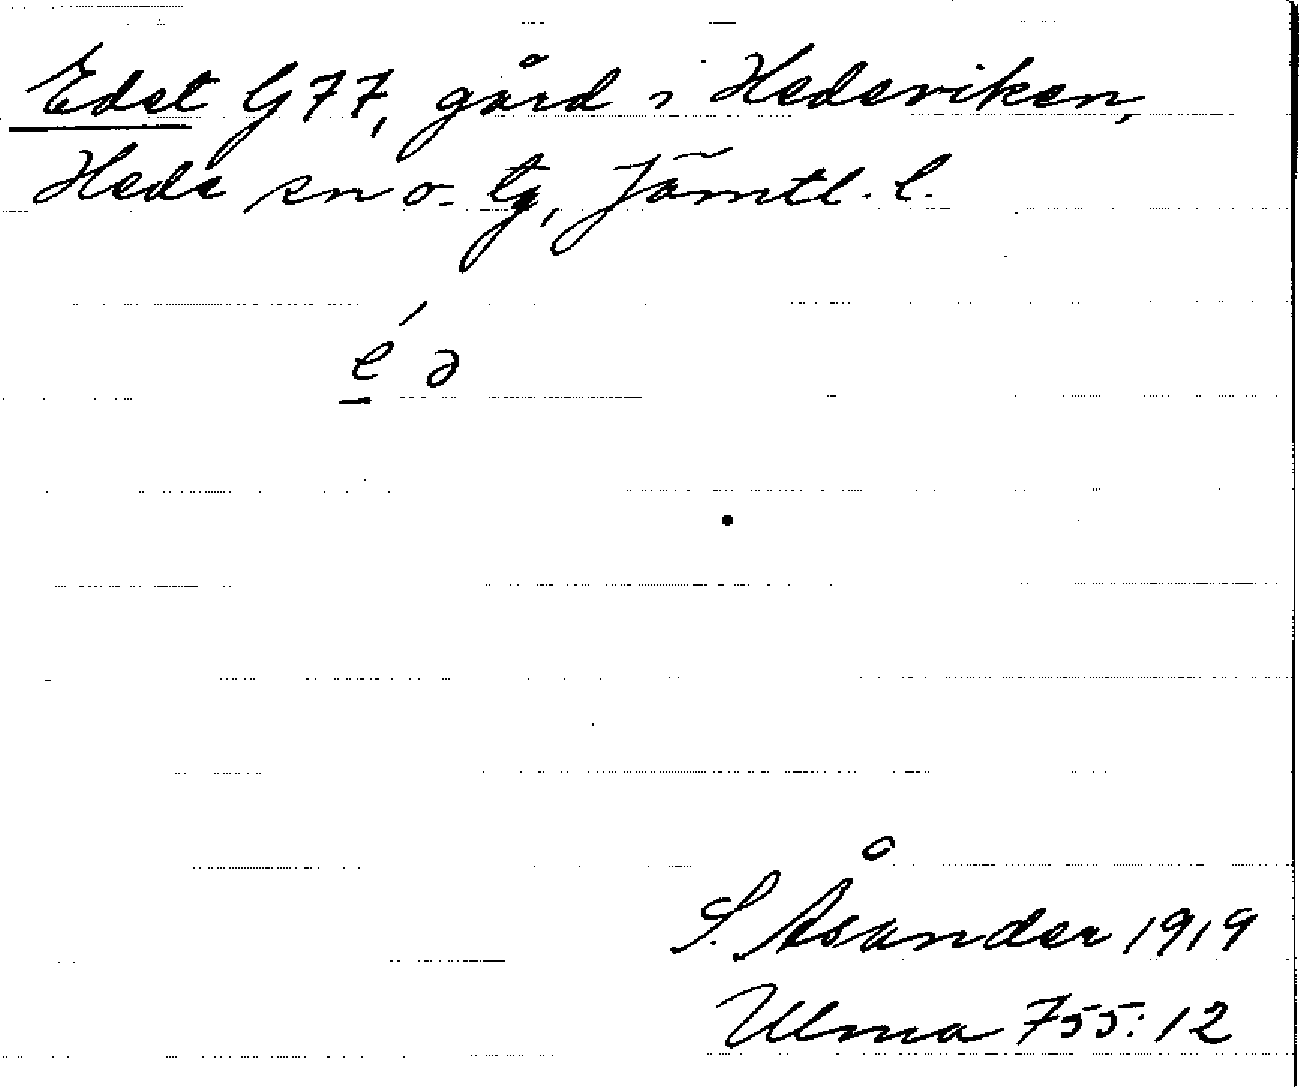 Edet G 77, gård i Hedeviken,
Hede sn o. tg, Jämtl. l.
é ə
S. Åsander 1919
Ulma 755:12